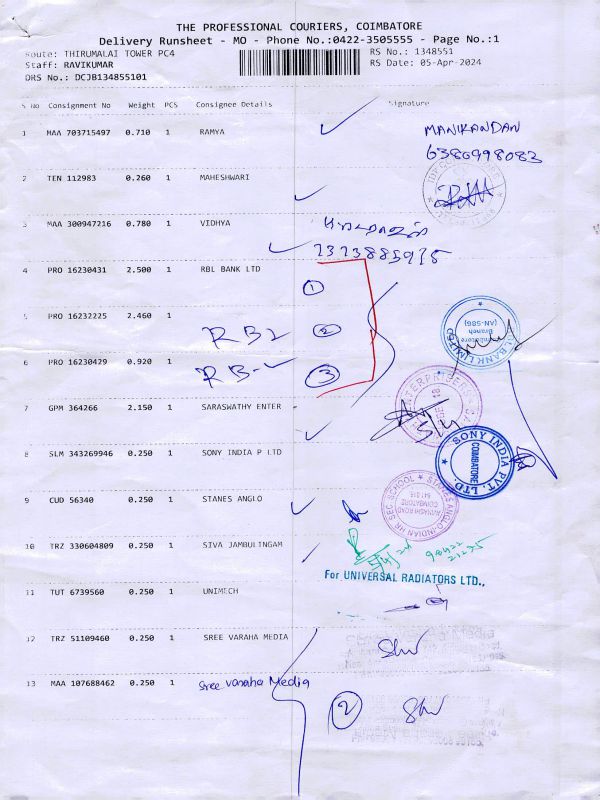 THE PROFESSIONAL COURIERS, COIMBATORE
Delivery Runsheet - MO - Phone No.:0422-3505555 - Page No.:1
Route: THIRUMALAI TOWER PC4 RS No.: 1348551
Staff: RAVIKUMAR RS Date: 05-Apr-2024
DRS No.: DCJB134855101
S No Consignment No Weight PCS Consignee Details Signature
1 MAA 703715497 0.710 1 RAMYA MANIKANDAN
6380998083
2 TEN 112983 0.260 1 MAHESHWARI
3 MAA 300947216 0.780 1 VIDHYA
4 PRO 16230431 2.500 1 RBL BANK LTD 1
5 PRO 16232225 2.460 1 RBL 2
6 PRO 16230429 0.920 1 3
7 GPM 364266 2.150 1 SARASWATHY ENTER
8 SLM 343269946 0.250 1 SONY INDIA P LTD
SONY INDIA PVT. LTD.
COIMBATORE
9 CUD 56340 0.250 1 STANES ANGLO
STANES ANGLO-INDIAN HR SEC. SCHOOL
COIMBATORE
10 TRZ 330604809 0.250 1 SIVA JAMBULINGAM
For UNIVERSAL RADIATORS LTD.,
11 TUT 6739560 0.250 1 UNIMECH
12 TRZ 51109460 0.250 1 SREE VARAHA MEDIA
13 MAA 107688462 0.250 1 Sree Varaha Media 2